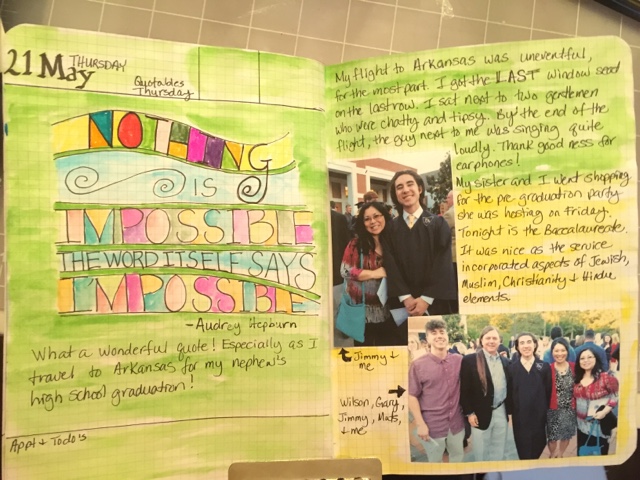 21 May THURSDAY
Quotables
Thursday
NOTHING
IS
IMPOSSIBLE
THE WORD ITSELF SAYS
I'MPOSSIBLE
- Audrey Hepburn
What a wonderful quote! Especially as I
travel to Arkansas for my nephew's
high school graduation!
Appt + Todo's
My flight to Arkansas was uneventful,
for the most part. I got the LAST window seat
on the last row. I sat next to two gentlemen
who were chatty and tipsy. By the end of the
flight, the guy next to me was singing quite
loudly. Thank good ness for
earphones!
My sister and I went shopping
for the pre graduation party
she was hosting on Friday.
Tonight is the Baccalaureate.
It was nice as the service
incorporated aspects of Jewish,
Muslim, Christianity + Hindu
elements.
Jimmy +
me
Wilson, Gary,
Jimmy, Muts,
+ me